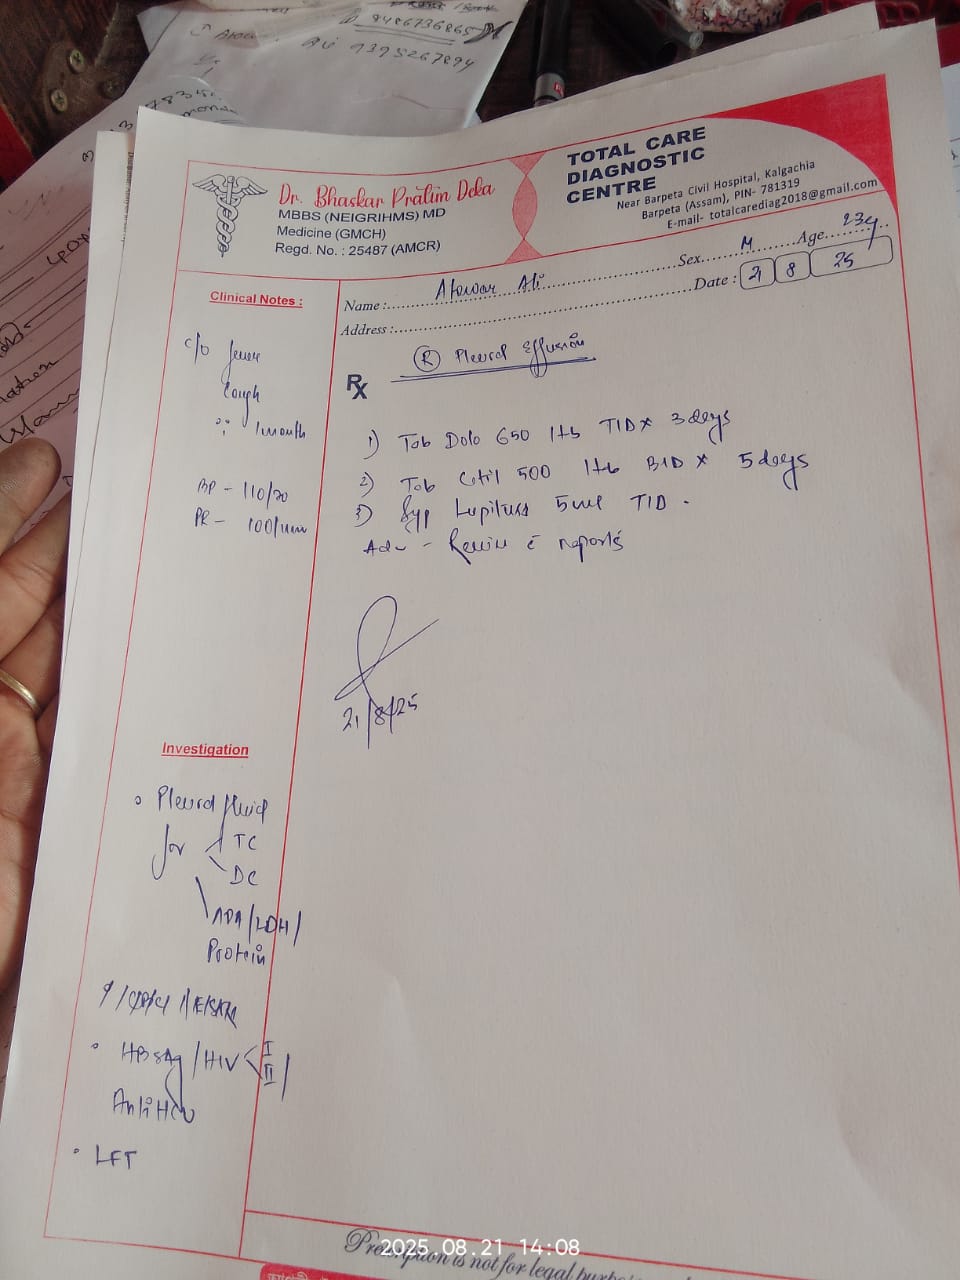 9486736865
9395267894
Dr. Bhaskar Pratim Deka
MBBS (NEIGRIHMS) MD
Medicine (GMCH)
Regd. No. : 25487 (AMCR)
TOTAL CARE
DIAGNOSTIC
CENTRE
Near Barpeta Civil Hospital, Kalgachia
Barpeta (Assam), PIN- 781319
E-mail- totalcarediag2018@gmail.com
Name : Ali Sex. M Age. 23y
Address : Date : 21 8 25
Clinical Notes :
c/o fever
Cough
1 month
BP - 110/70
PR - 100/min
R Pleural Effusion
Rx
1) Tab Dolo 650 1tb TID x 3 days
2) Tab Cetil 500 1tb BID x 5 days
3) Syp Lupituss 5ml TID .
Adv - Review c̄ reports
21/8/25
Investigation
Pleural fluid
for TC
DC
ADA/LDH/
Protein
HBsAg/HIV I
II /
Anti HCV
LFT
Prescription is not for legal
2025.08.21 14:08